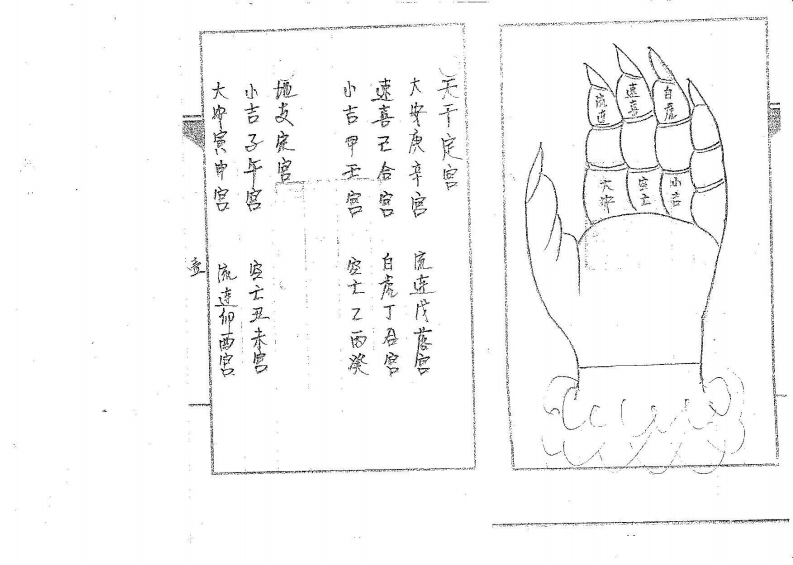 流連
速喜
白虎
大安
空亡
小吉
天干定宫
大安庚辛宫
流連戊落宫
速喜己合宫
白虎丁名宫
小吉甲壬宫
空亡乙丙癸
地支定宫
小吉子午宫
空亡丑未宫
大安寅申宫
流連卯酉宫
壹